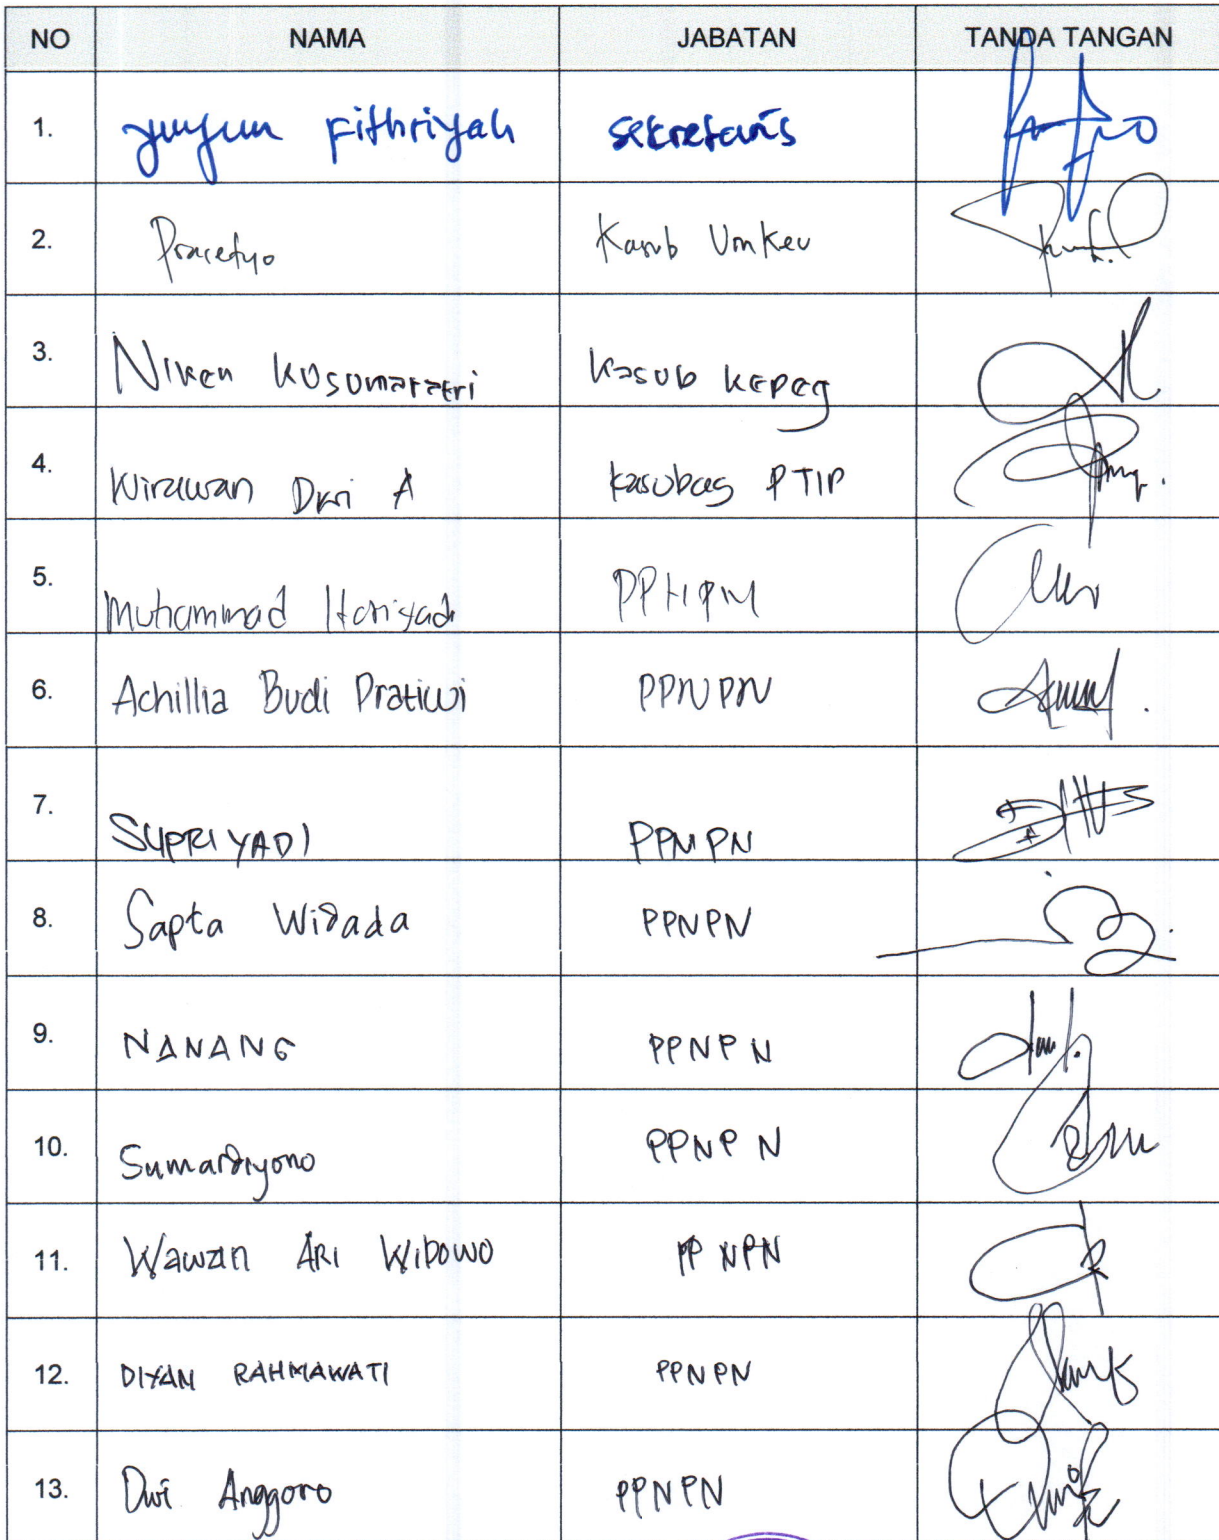 NO NAMA JABATAN TANDA TANGAN
1. Yuyun Fithriyah Sekretaris
2. Prasetyo Kasub Umkeu
3. Niken Kusumarastri Kasub Kepeg
4. Wirawan Dwi A Kasubag PTIP
5. Muhammad Hariyadi PPNPN
6. Achillia Budi Pratiwi PPNPN
7. SUPRIYADI PPNPN
8. Sapta Widada PPNPN
9. NANANG PPNPN
10. Sumardiyono PPNPN
11. Wawan ARI Wibowo PPNPN
12. DIYAN RAHMAWATI PPNPN
13. Dwi Anggoro PPNPN